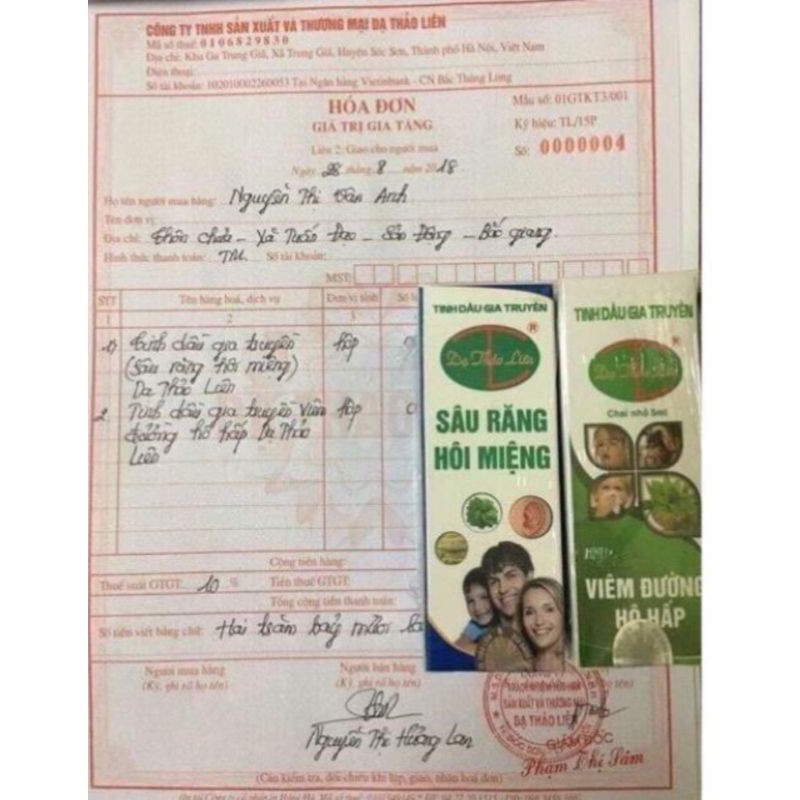 CÔNG TY TNHH SẢN XUẤT VÀ THƯƠNG MẠI DẠ THẢO LIÊN
Mã số thuế: 0106829830
Địa chỉ: Khu Ga Trung Giã, Xã Trung Giã, Huyện Sóc Sơn, Thành phố Hà Nội, Việt Nam
Điện thoại:
Số tài khoản: 102010002260053 Tại Ngân hàng Vietinbank - CN Bắc Thăng Long
HÓA ĐƠN
GIÁ TRỊ GIA TĂNG
Liên 2: Giao cho người mua
Ngày 28 tháng 8 năm 2018
Mẫu số: 01GTKT3/001
Ký hiệu: TL/15P
Số: 0000004
Họ tên người mua hàng: Nguyễn Thị Vân Anh
Tên đơn vị:
Địa chỉ: Thôn Chảu - Xã Tuấn Đạo - Sơn Động - Bắc Giang
Hình thức thanh toán: TM. Số tài khoản:
MST:
STT Tên hàng hoá, dịch vụ Đơn vị tính Số
1 2 3
1) Tinh dầu gia truyền hộp
(Sâu răng hôi miệng)
Dạ Thảo Liên
2. Tinh dầu gia truyền Viêm hộp
đường hô hấp Dạ Thảo
Liên
Cộng tiền hàng:
Thuế suất GTGT: 10 % Tiền thuế GTGT:
Tổng cộng tiền thanh toán:
Số tiền viết bằng chữ: Hai trăm bảy mươi
Người mua hàng
(Ký, ghi rõ họ tên)
Người bán hàng
(Ký, ghi rõ họ tên)
Nguyễn Thị Hương Lan
SẢN XUẤT VÀ THƯƠNG MẠI
DẠ THẢO LIÊN
GIÁM ĐỐC
Phạm Thị Sâm
(Cần kiểm tra, đối chiếu khi lập, giao, nhận hoá đơn)
TINH DẦU GIA TRUYỀN
Dạ Thảo Liên ®
SÂU RĂNG
HÔI MIỆNG
TINH DẦU GIA TRUYỀN
Dạ Thảo Liên ®
Chai nhỏ 5ml
VIÊM ĐƯỜNG
HÔ HẤP